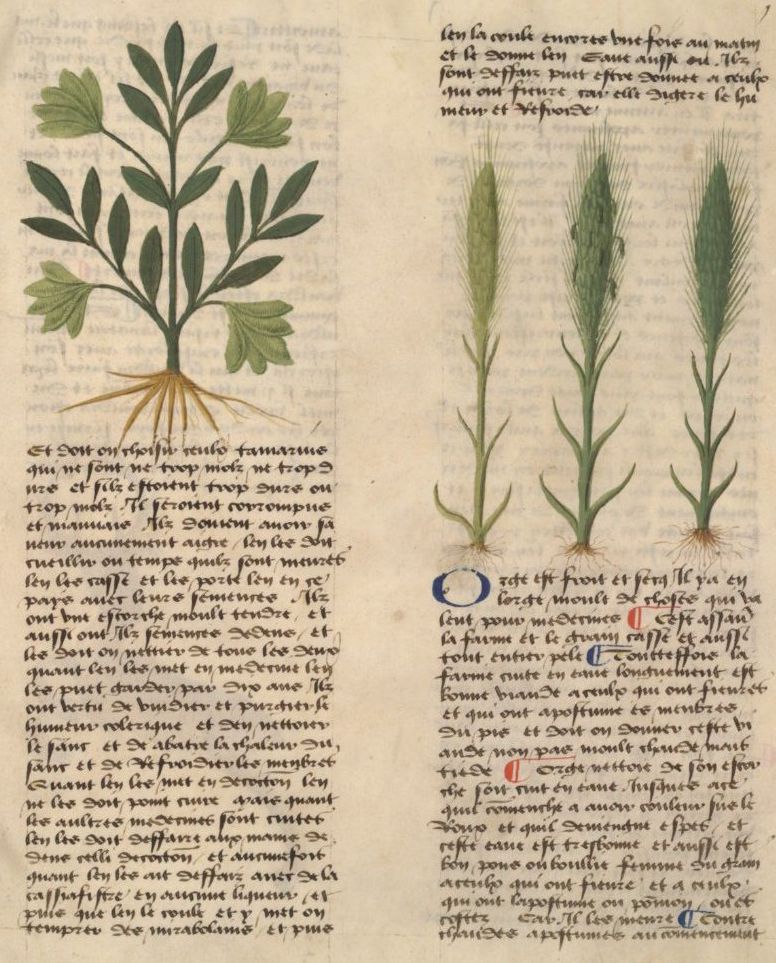 Et doit on choisir ceulx tamarins
qui ne sont ne trop molz ne trop d
urs et silz estoient trop durs ou
trop molz Ilz seroient corrompus
et mauuais Ilz doiuent auoir sa
ueur aucunement aigre / len les doit
cueillir ou temps quilz sont meures
len les casse et les porte len en ce
pays auec leurs semences Ilz
ont vne escorche moult tendre / et
aussi ont Ilz semences dedens / et
les doit on nettier de tous les deux
quant len les met en medecine len
les puet garder par dix ans Ilz
ont vertu de vuidier et purgier le
humeur colerique et den nettoier
le sanc et de abatre la chaleur du
sanc et de Refroidier les menbres
Quant len les met en decoction len
ne les doit point cuire Mais quant
les aultres medecines sont cuites
len les doit deffaire aux mains de
dens celli decoction / et aucunefois
quant len les ait deffair auec de la
cassiafistre en aucune liqueur / et
puis que len le coule et y met on
temprer des mirabolans / et puis
len la coule encores vne fois au matin
et le donne len Eaue aussi ou Ilz
sont deffair puet estre donnee a ceulx
qui ont fieure car elle digere le hu
meur et Refroide
Orge est froit et secq Il ya en
lorge / moult de choses qui va
lent pour medecines ¶ Cest assau
la farine et le grain casse et aussi
tout entier pele ¶ Touteffois la
farine cuite en eaue longuement est
bonne viande a ceulx qui ont fieures
et qui ont apostume es menbres
du pis et doit on donner ceste vi
ande non pas moult chaude mais
tiede ¶ Orge nettoie de son escor
che soit cuit en eaue Jusques ace
quil comenche a auoir couleur sus le
Roux et quil deuiengne espes / et
ceste eaue est tresbonne et aussi est
bon, pous ou boullie femme du grain
a ceulx qui ont fieure et a ceulx
qui ont lapostume ou pomon, ou es
costez Car Il les meure ¶ Contre
chaudes apostumes au commencement